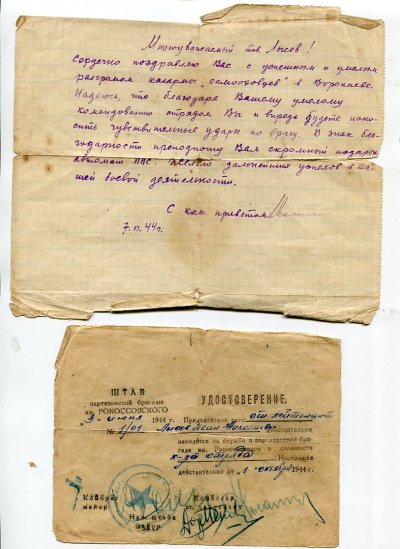 Многоуважаемый тов. Лысов!
Сердечно поздравляю Вас с успешным и умелым
разгромом казармы "самооховцев" в Воропаеве.
Надеюсь, что благодаря Вашему умелому
командованию отрядом Вы и впредь будете нано-
сить чувствительные удары по врагу. В знак бла-
годарности преподношу Вам скромный подарок
автомат ППС. Желаю дальнейших успехов в Ва-
шей боевой деятельности.
С ком. приветом
7.VI.44г.
ШТАБ
партизанской бригады
им. РОКОССОВСКОГО
"3" июня 1944 г.
№ 1/01
УДОСТОВЕРЕНИЕ.
Предъявитель сего ст. лейтенант
Лысов действительно
находится на службе в партизанской бри-
гаде им. Рокоссовского в должности
к-ра отряда Настоящее
действительно до "1" октября 1944 г.
Комбриг
майор
Комиссар
ст.
Нач. штаба
майор